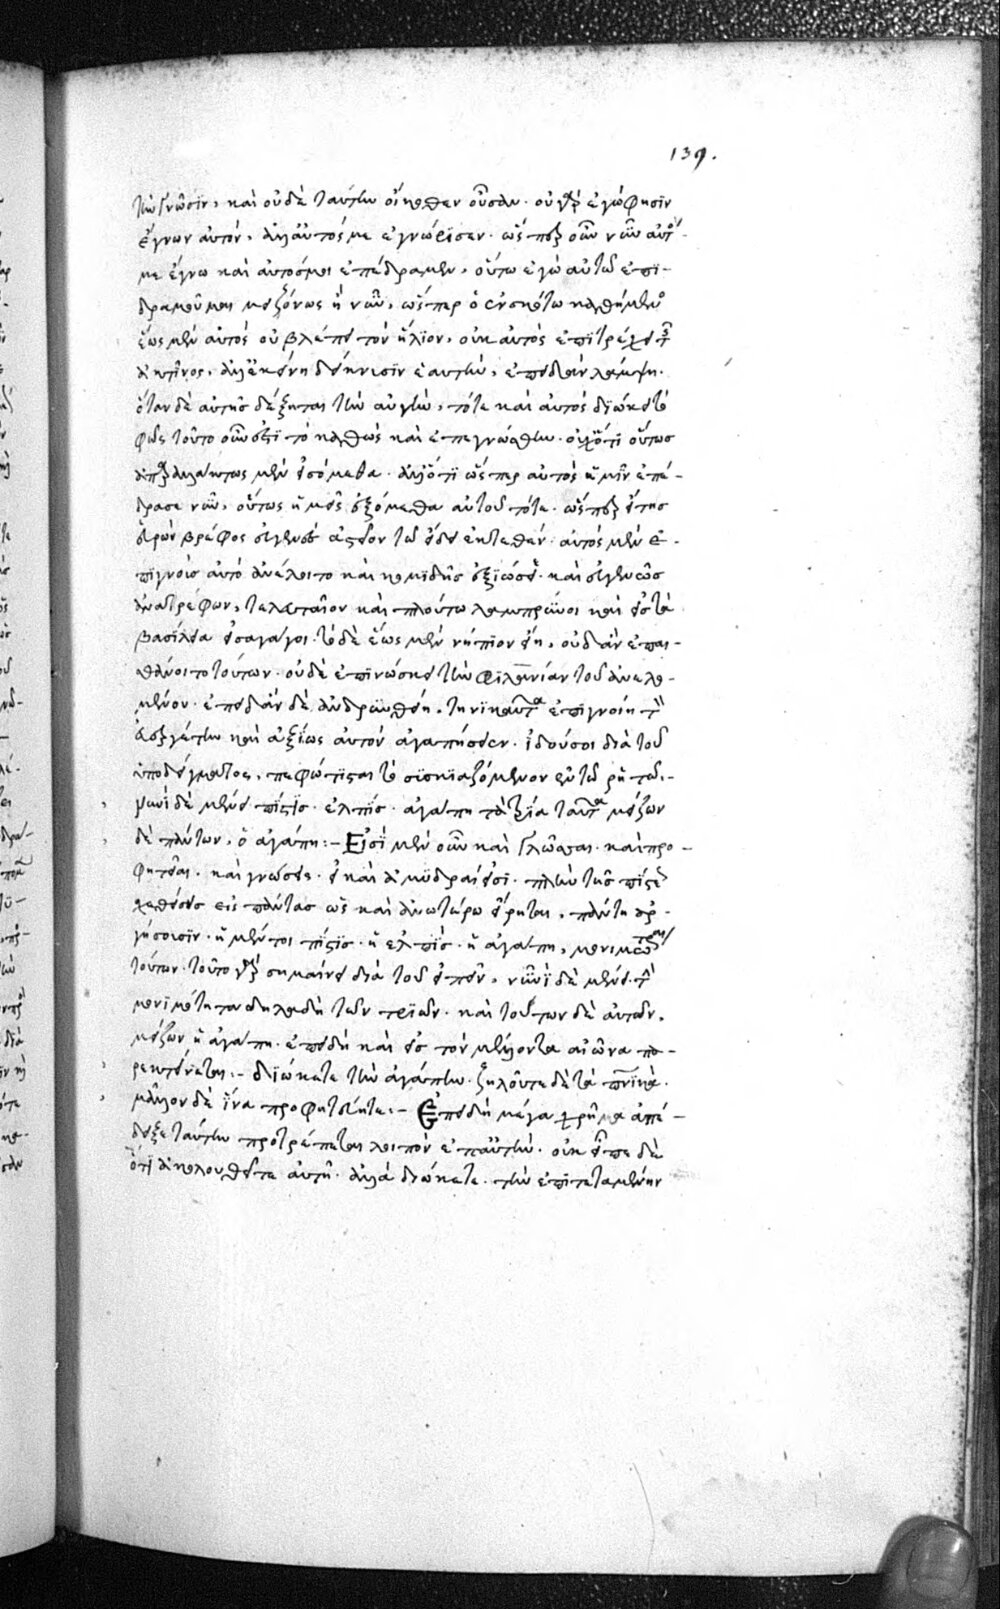 139.
τὴν γνῶσιν, καὶ οὐδὲ ταύτην οἴκοθεν οὖσαν. οὐ γὰρ ἐγώ φησιν
ἔγνων αὐτόν, ἀλλ' αὐτός με ἐγνώρισεν. ὥσπερ οὖν νῦν αὐτός
με ἔγνω καὶ αὐτός μοι ἐπέδραμεν, οὕτω ἐγὼ αὐτῷ ἐπι-
δραμοῦμαι μειζόνως ἢ νῦν, ὥσπερ ὁ ἐν σκότω καθήμενος
ἕως μὲν αὐτὸς οὐ βλέπει τὸν ἥλιον, οὐκ αὐτὸς ἐπιτρέχει τῆς
ἀκτῖνος, ἀλλ' ἐκείνη δείκνυσιν ἑαυτήν, ἐπειδὰν λάμψη.
ὅταν δὲ αὐτῆς δέξηται τὴν αὐγήν, τότε καὶ αὐτὸς διώκει τὸ
φῶς τοῦτο οὖν ἐστι τὸ καθὼς καὶ ἐπεγνώσθην. οὐχ ὅτι οὕτως
μὲν ἐσόμεθα. ἀλλ' ὅτι ὥσπερ αὐτὸς ἡμῖν ἐπέ-
δρασε νῦν, οὕτως ἡμεῖς ἑξόμεθα αὐτοῦ τότε. ὥσπερ εἴ τις
ἱερὸν βρέφος εὐγενὲς ἀστεῖον τῶ εἴδει ἐκτεθέν. αὐτὸς μὲν ἐ-
πιγνοὺς αὐτὸ ἀνέλοιτο καὶ κομιδῆς ἀξιώσει. καὶ εὐγενῶς
ἀνατρέφων, τελευταῖον καὶ πλούτω λαμπρύνοι καὶ εἰς τὰ
βασίλεια εἰσαγάγοι. τὸ δὲ ἕως μὲν νήπιον εἴη, οὐδὲν ἐπαι-
σθάνοιτο τούτων. οὐδὲ ἐπιγνώσκει τὴν φιλανίαν τοῦ ἀνελο-
μένου. ἐπειδὰν δὲ ἀνδρωθείη, τηνικαῦτα ἐπιγνοίη τὸν
εὐεργέτην καὶ ἀξίως αὐτὸν ἀγαπήσειεν. ἰδού σοι διὰ τοῦ
ὑποδείγματος, πεφώτισται τὸ συσκιαζόμενον ἐν τῶ ῥητῶ.-
νυνὶ δὲ μένει πίστις. ἐλπίς. ἀγάπη τὰ τρία ταῦτα μείζων
δὲ πάντων, ἡ ἀγάπη:- Εἰσὶ μὲν οὖν καὶ γλῶσσαι. καὶ προ-
φητεῖαι. καὶ γνώσεις. εἰ καὶ ἀμυδραί εἰσι. πλὴν τῆς πίστεως
χεθείσης εἰς πάντας ὡς καὶ ἀνωτέρω εἴρηται, πάντη ἀρ-
γήσουσιν. ἡ μέντοι πίστις. ἡ ἐλπίς. ἡ ἀγάπη, μονιμώτεραι
τούτων. τοῦτο γὰρ σημαίνει διὰ τοῦ εἰπεῖν, νυνὶ δὲ μένει. τὴν
μονιμότητα δηλαδὴ τῶν τριῶν. καὶ τούτων δὲ αὐτῶν,
μείζων ἡ ἀγάπη. ἐπειδὴ καὶ εἰς τὸν μέλλοντα αἰῶνα πα-
ρεκτείνεται:- διώκετε τὴν ἀγάπην. ζηλοῦτε δὲ τὰ πνικά.
μᾶλλον δὲ ἵνα προφητεύητε:- Ἐπειδὴ μέγα χρῆμα ἀπέ-
δειξε ταύτην προτρέπεται λοιπὸν ἐπ' αὐτήν. οὐκ εἶπε δὲ
ὅτι ἀκολουθεῖτε αὐτῇ. ἀλλὰ διώκετε. τὴν ἐπιτεταμένην